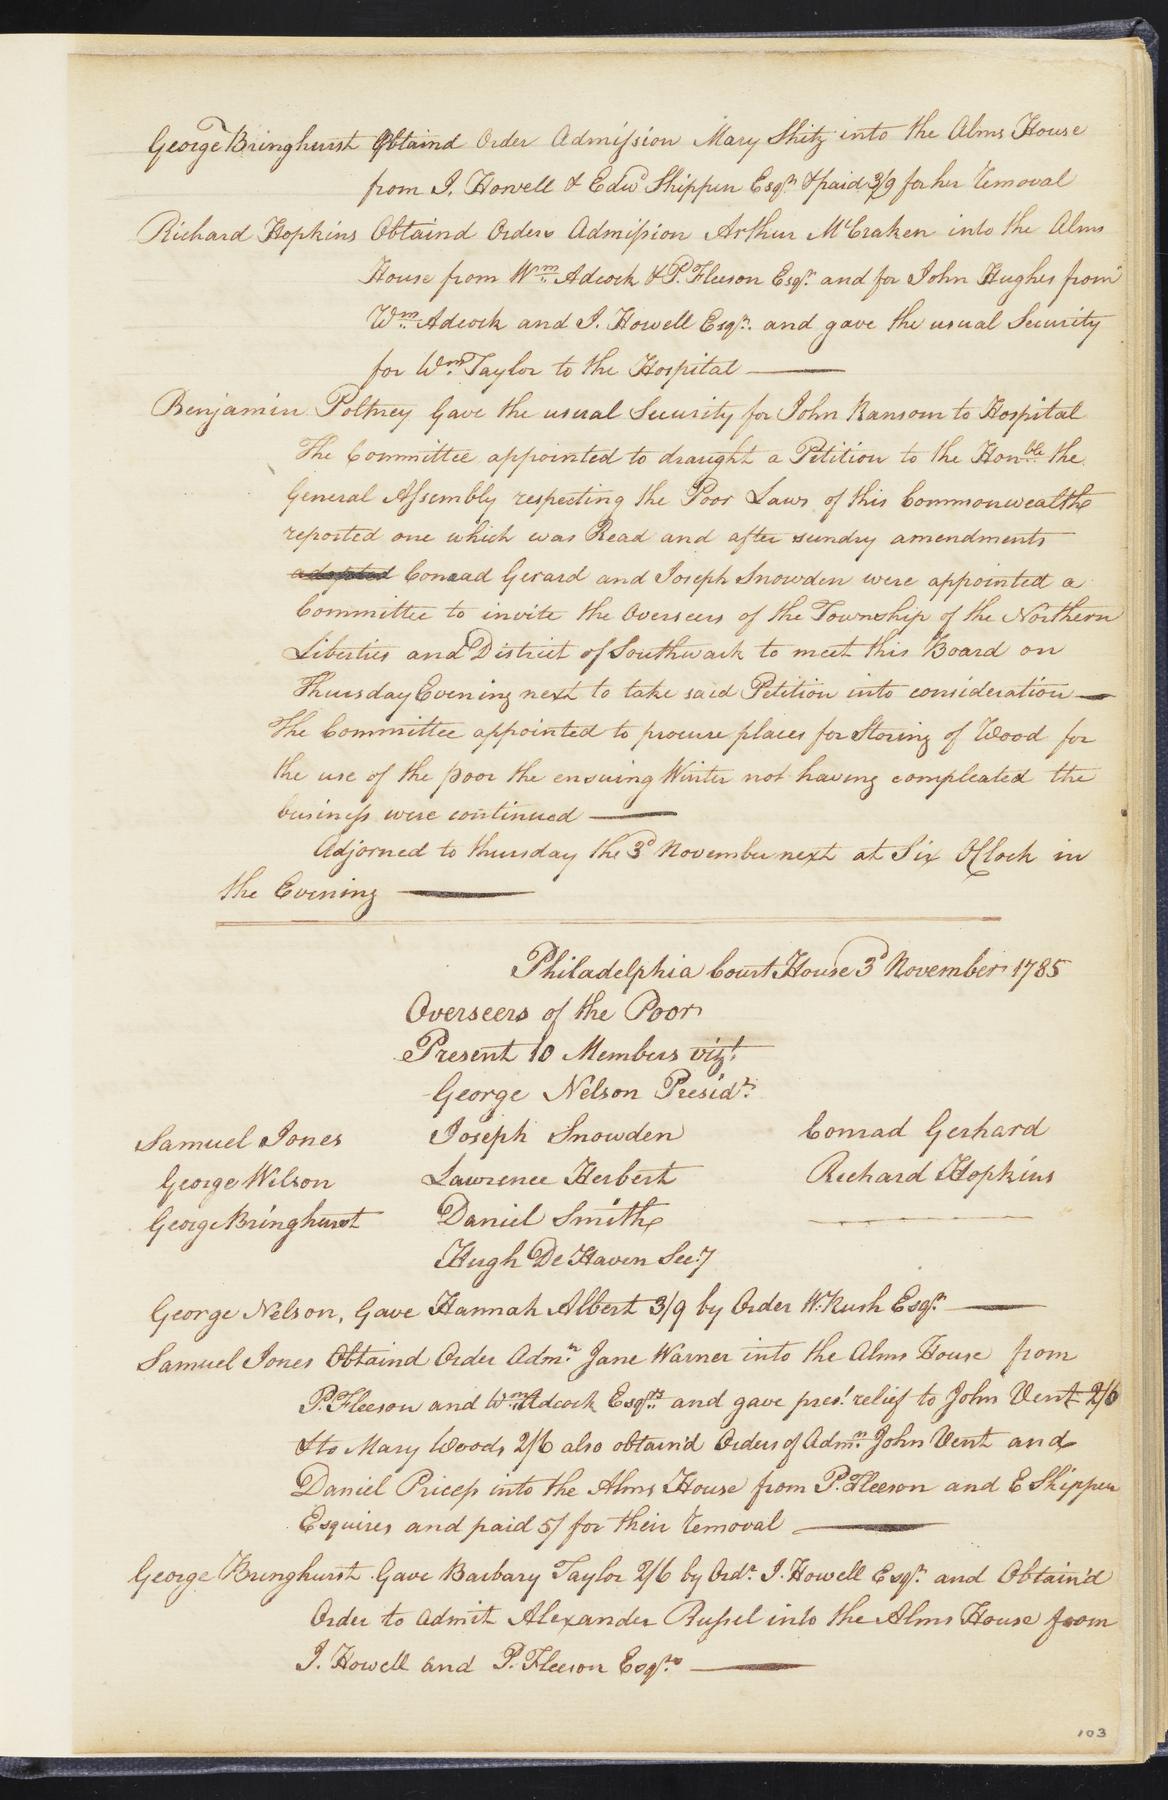 George Bringhurst Obtaind Order Admission Mary Shitz into the Alms House
from I. Howell & Edwd Shippen Esqrs & paid 3/9 for her removal
Richard Hopkins Obtaind Orders Admission Arthur McCraken into the Alms
House from Wm Adcock & P. Fleeson Esqrs and for John Hughes from
Wm Adcock and I. Howell Esqrs. and gave the usual Security
for Wm Taylor to the Hospital
Benjamin Poltney Gave the usual Security for John Ransom to Hospital
The Committee appointed to draught a Petition to the Honble the
General Assembly respecting the Poor Laws of this Commonwealth
reported one which was Read and after sundry amendments
adopted Conrad Gerard and Joseph Snowden were appointed a
Committee to invite the Overseers of the Township of the Northern
Liberties and District of Southwark to meet this Board on
Thursday Evening next to take said Petition into consideration
The Committee appointed to procure places for Storing of Wood for
the use of the poor the ensuing Winter not having compleated the
business were continued
Adjorned to thursday the 3d November next at Six OClock in
the Evening
Philadelphia Court House 3d November 1785
Overseers of the Poor
Present 10 Members vizt
George Nelson Presidt
Samuel Jones Joseph Snowden Conrad Gerhard
George Wilson Lawrence Herbert Richard Hopkins
George Bringhurst Daniel Smith
Hugh De Haven Secy
George Nelson, Gave Hannah Albert 3/9 by Order W. Rush Esqr
Samuel Jones Obtaind Order Admn Jane Warner into the Alms House from
P. Fleeson and Wm Adcock Esqrs and gave prest relief to John Vent 2/6
& to Mary Woods 2/6 also obtain'd Orders of Admn John Vent and
Daniel Price into the Alms House from P. Fleeson and E Shippen
Esquires and paid 5/ for their removal
George Bringhurst Gave Barbary Taylor 2/6 by Ordr I. Howell Esqr and Obtain'd
Order to admit Alexander Russel into the Alms House from
I. Howell and P. Fleeson Esqrs
103